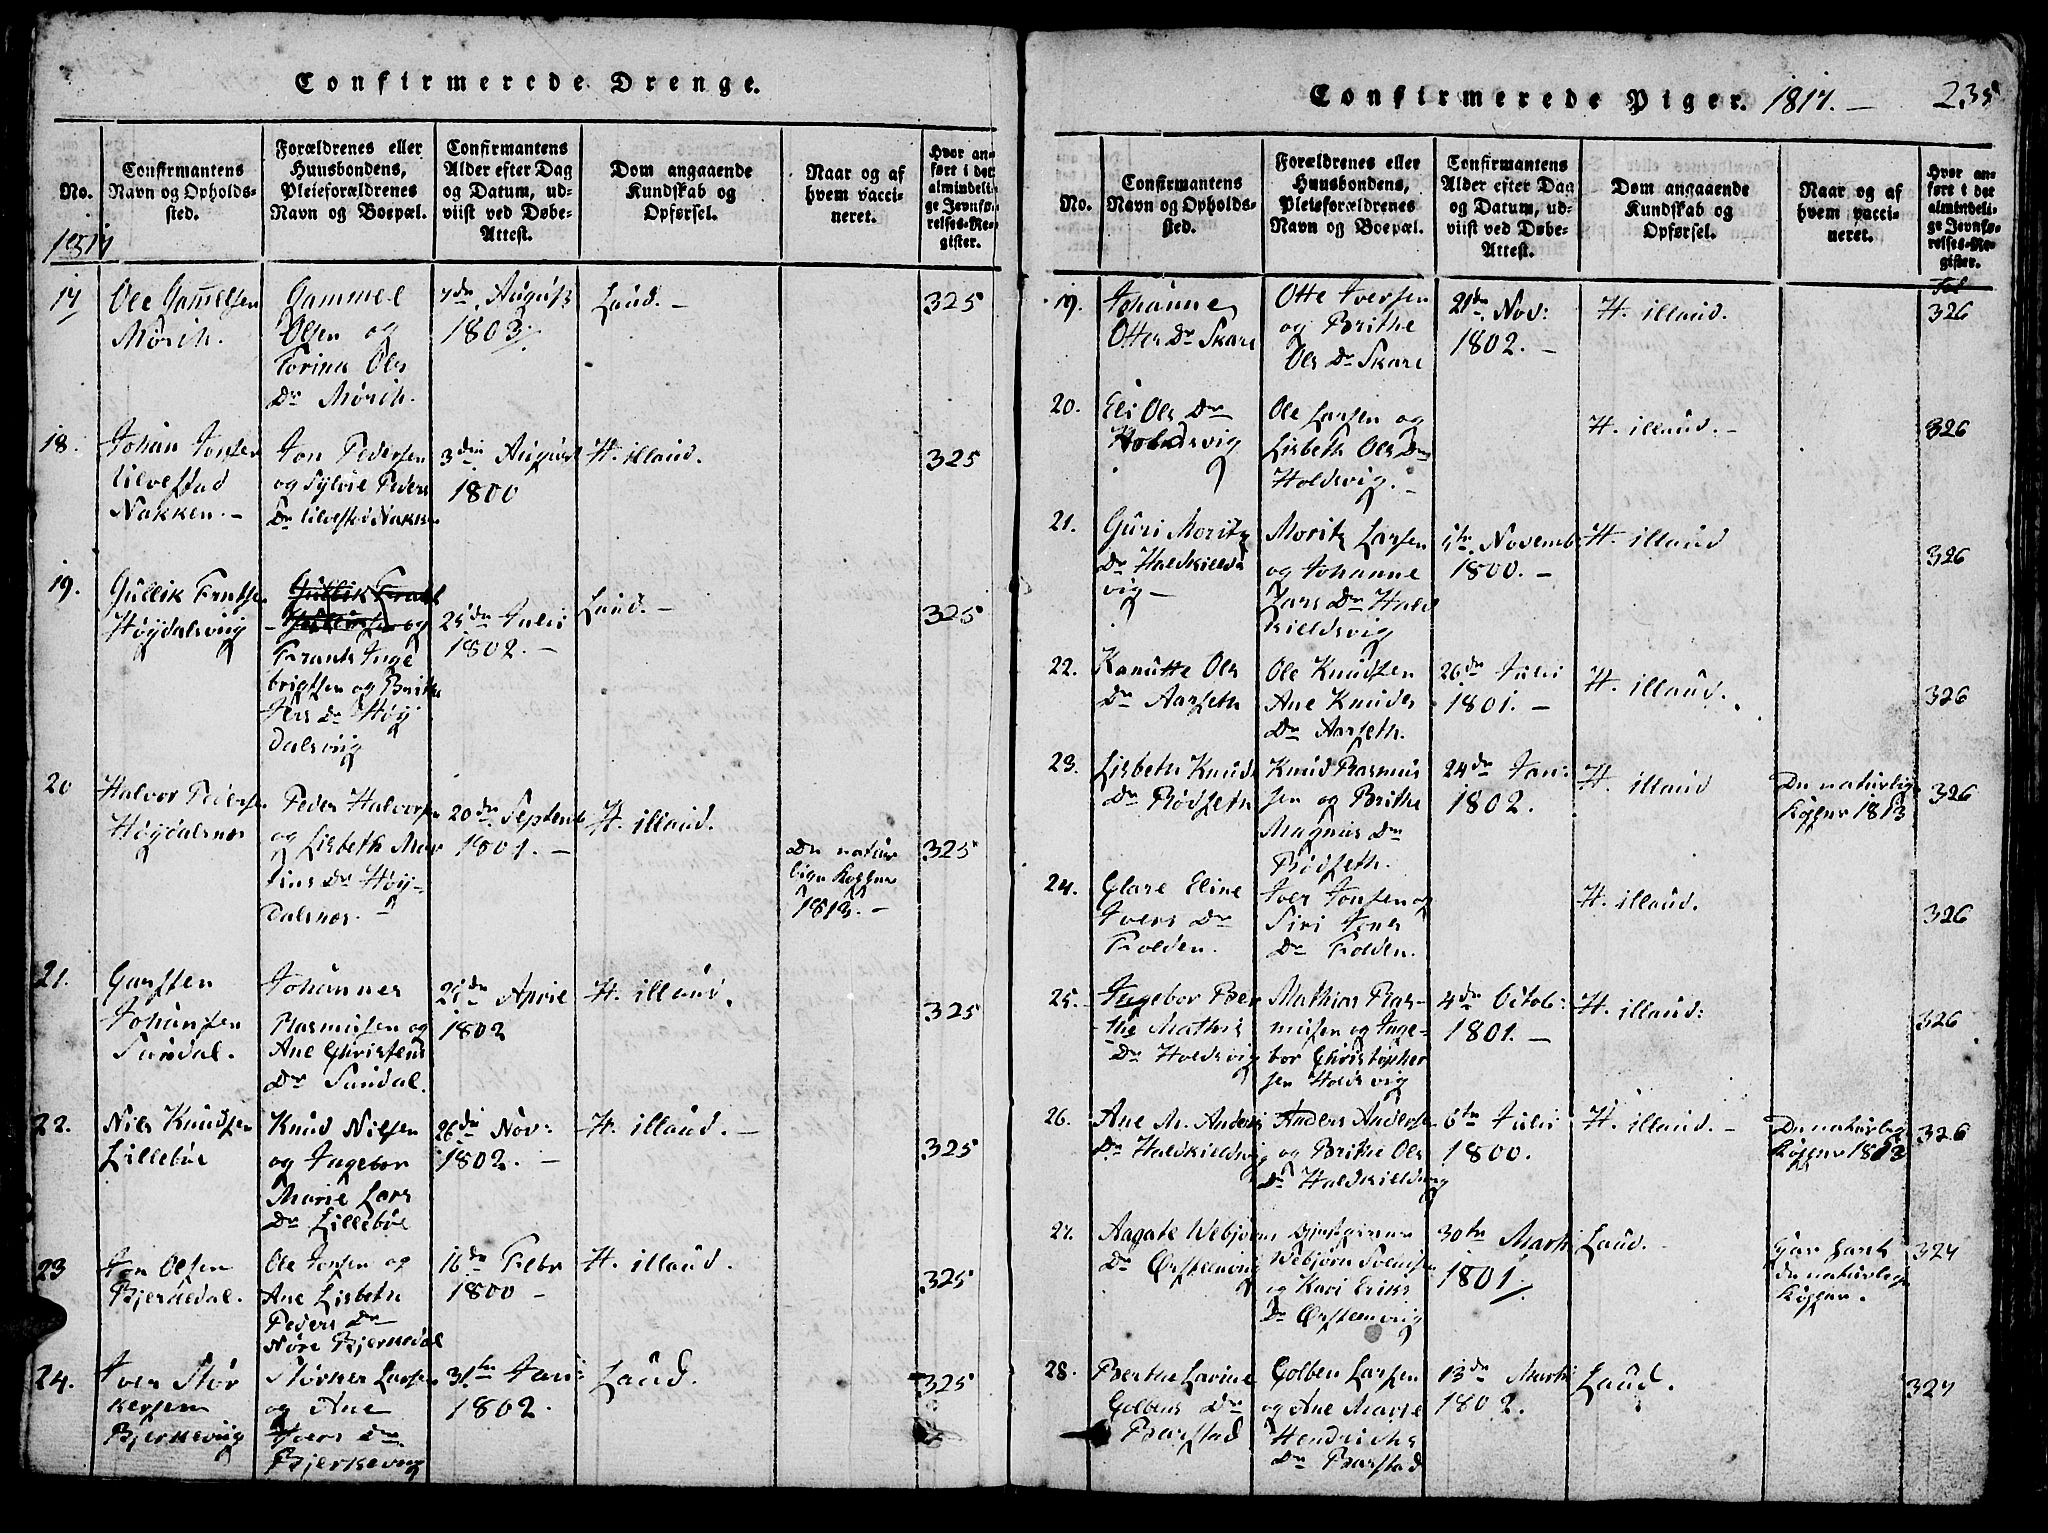 Confirmerede Drenge.
No.
Confirmantens
Navn og Opholds-
sted.
Forældrenes eller
Huusbondens,
Pleieforældrenes
Navn og Boepæl.
Confirmantens
Alder efter Dag
og Datum, ud-
viist ved Døbe-
Attest.
Dom angaaende
Kundskab og
Opførsel.
Naar og af
hvem vacci-
neret.
Hvor an-
ført i det
almindeli-
ge Jevnfø-
relses-Re-
gister.
1817
17
Ole Gam̅elsen
Mørch.
Gammel
Olsen og
Torina Ols
Dr Mørch.
7de August
1803.
Laud. -
325
18.
Johan Jonsen
Ulvestad
Nakken. -
Jon Pedersen
og Sylvie Peders
Dr Ulvestad Nakken
3die August
1800
H. illaud.
325
19.
Gullik Frantsen
Høydalsvig
og
Frants Inge
brigtsen og Brithe
Iers Dr Høy
dalsvig
25de Julii
1802. -
Laud. -
325
20
Halvor Pedersen
Høydalsnes
Peder Halvorsen
og Lisbeth Mar
tins Dr Høy-
dalsnes. -
20de Septemb
1801. -
H. illaud.
De natur
lige Kopper
1813. -
325
21.
Garssen
Johansen
Sundal.
Johannes
Rasmusen og
Ane Christens
Dr Sundal.
29de April
1802
H. illaud.
325
22.
Nils Knudsen
Lillebøe
Knud Nilsen
og Ingebor
Marie Lars
Dr Lillebøe
26de Nov:
1802. -
H. illaud. -
325
23
Jon Olsen
Bjerkedal.
Ole Jonsen og
Ane Lisbeth
Peders Dr
Nøre Bjerkedal
16de Febr
1800 -
H. illaud.
325
24.
Iver Stør
kersen
Bjerkevig
Størker Larsen
og Ane
Ivers Dr
Bjerkevig
31te Jan:
1802.
Laud.
325
Confirmerede Piger. 1817. -
235
No.
Confirmantens
Navn og Opholds-
sted.
Forældrenes eller
Huusbondens,
Pleieforældrenes
Navn og Boepæl.
Confirmantens
Alder efter Dag
og Datum, ud-
viist ved Døbe-
Attest.
Dom angaaende
Kundskab og
Opførsel.
Naar og af
hvem vacci-
neret.
Hvor an-
ført i det
almindeli-
ge Jevnfø-
relses-Re-
gister.
Fol
19.
Johanne
Ottes Dr Skare
Otte Iversen
og Brithe
Ols Dr Skare
21de Nov:
1802. -
H. illaud.
326
20.
Eli Ols Dr
Holdsvig
Ole Larsen og
Lisbeth Ols Dr
Holdsvig. -
H. illaud. -
326
21.
Guri Moritz
Dr Haldkilds
vig -
Moritz Larsen
og Johanne
Lars Dr Hald
kieldsvig
1te Novemb
1800. -
H. illaud
326
22.
Kanutte Ols
Dr Aarseth
Ole Knudsen
Ane Knuds
Dr Aarseth.
26de Julii
1801. -
H. illaud.
326
23.
Lisbeth Knuds
Dr Rødseth
Knud Rasmus
sen og Brithe
Magnus Dr
Rødseth.
24de Jan:
1802.
H. illaud
De naturlig
Kopper 1813
326
24.
Clare Eline
Ivers Dr
Folden.
Iver Jonsen og
Siri Jons
Dr Folden.
H. illaud.
326
25.
Ingebor Ber
the Mathis
Dr Holdsvig
Mathias Ras-
musen og Inge-
bor Christopher
sen Holdsvig
4de Octob:
1801. -
H. illaud:
326
26.
Ane M. Anders
Dr Haldkieldsvig
Anders Andersen
og Brithe Ols
Dr Haldkieldsvig
6te Julii
1800.
H. illaud. -
De naturlige
Kopper 1813
326
27.
Aagate Webjørns
Dr Ørsteenvig
Webjørn
og Kari Eriks
Dr Ørsteenvig
30te Marti
1801.
Laud. -
har havt
de naturlige
Kopper.
327
28.
Berthe Lavine
Colbens Dr
Barstad
Colben Larsen
og Ane Marie
Hendrichs
Dr Barstad
13de Marti
1802.
Laud.
327